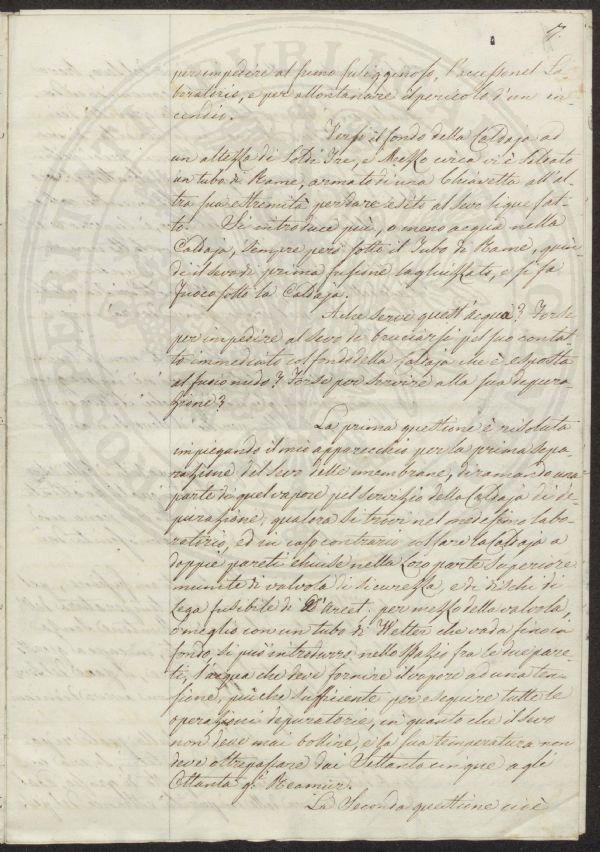 7
per impedire al fumo fuligginoso, l'accesso nel La
boratorio, e per allontanare il pericolo d'un in-
cendio.
Verso il fondo della Caldaja ad
un altezza di Soldi Tre, e Mezzo circa vi è Saldato
un tubo di Rame, armato di una Chiavetta all'al-
tra sua estremità per dare esito al Sevo liquefat-
to. Si introduce più, o meno acqua nella
Caldaja, sempre però sotto il Tubo di Rame, quin-
di il sevo di prima fusione tagliuzzato, e si fa
fuoco sotto la Caldaja.
A che serve quest'acqua? Forse
per impedire al Sevo di bruciarsi pel suo contat-
to immediato col fondo della Caldaja che è esposta
al fuoco nudo? Forse per servire alla sua depura
zione?
La prima questione è risoluta
impiegando il mio apparecchio per la prima sepa
razione del Sevo delle membrane, diramando una
parte di quel vapore pel servizio della Caldaja di de-
purazione, qualora si trovi nel medesimo labo-
ratorio, ed in caso contrario col fare la Caldaja a
doppie pareti chiuse nella Loro parte Superiore
munite di valvola di sicurezza, e di dischi di
lega fusibile di D'Arcet. per mezzo della valvola,
o meglio con un tubo di Welter che vada fino in
fondo, si può introdurre, nello spazio fra le due pare-
ti, l'acqua che deve fornire il vapore ad una ten-
sione, più che sufficiente per eseguire tutte le
operazioni depuratorie, in quanto che il Sevo
non deve mai bollire, e la sua temperatura non
deve oltrepassare dai Settanta cinque agli
Ottanta g.i Reamur.
La Seconda questione cioè